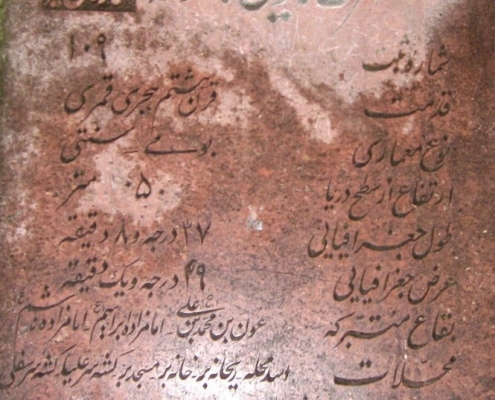 شماره ثبت ۱۰۹
قدمت قرن هشتم هجری قمری
نوع معماری بومی سنتی
ارتفاع از سطح دریا ۰۵۰ متر
طول جغرافیایی ۳۷ درجه و ۸ دقیقه
عرض جغرافیایی ۴۹ درجه و یک دقیقه
بقاع متبرکه عون بن محمد بن علی (ع) امامزاده ابراهیم (ع) امامزاده قاسم (ع)
محلات اسد محله ریحانه بر خانه بر مسجد بر کشه سر علیا کشه سر سفلی